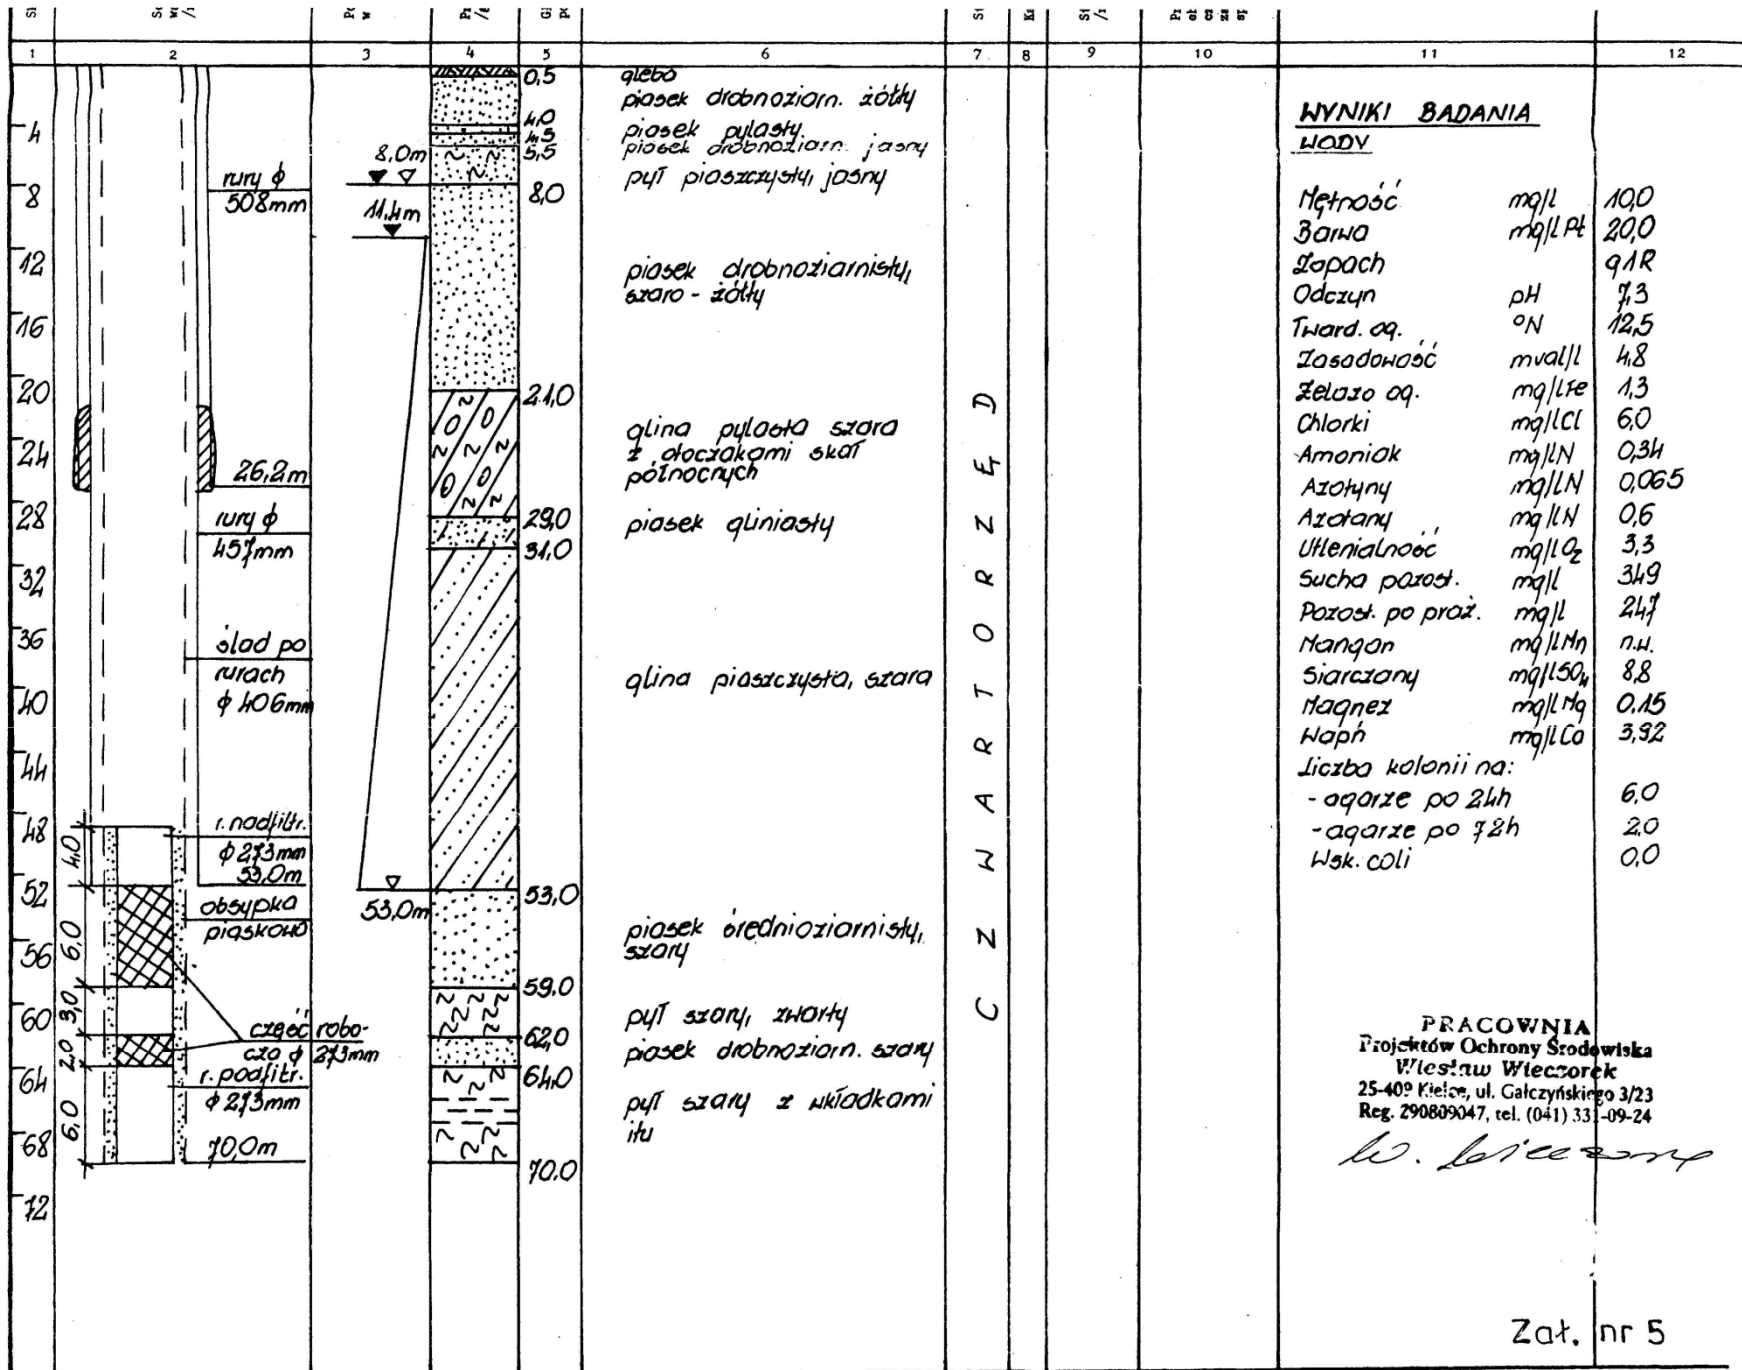 1 2 3 4 5 6 7 8 9 10 11 12
4
8
12
16
20
24
28
32
36
40
44
48
52
56
60
64
68
72
rury ϕ
508mm
26,2m
rury ϕ
457mm
ślad po
rurach
ϕ 406mm
r. nadfiltr.
ϕ 273mm
53,0m
obsypka
piaskowa
część robo-
cza ϕ 273mm
r. podfiltr.
ϕ 273mm
70,0m
4,0
6,0
3,0
2,0
6,0
8,0m
11,4m
53,0m
0,5
4,0
4,5
5,5
8,0
21,0
29,0
31,0
53,0
59,0
62,0
64,0
70,0
gleba
piasek drobnoziarn. żółty
piasek pylasty.
piasek drobnoziarn. jasny
pył piaszczysty, jasny
piasek drobnoziarnisty,
szaro - żółty
glina pylasta szara
z otoczakami skał
północnych
piasek gliniasty
glina piaszczysta, szara
piasek średnioziarnisty,
szary
pył szary, zwarty
piasek drobnoziarn. szary
pył szary z wkładkami
iłu
C Z W A R T O R Z Ę D
WYNIKI BADANIA
WODY
Mętność mg/l 10,0
Barwa mg/l Pt 20,0
Zapach q1R
Odczyn pH 7,3
Tward. og. °N 12,5
Zasadowość mval/l 4,8
Żelazo og. mg/l Fe 1,3
Chlorki mg/l Cl 6,0
Amoniak mg/l N 0,34
Azotyny mg/l N 0,065
Azotany mg/l N 0,6
Utlenialność mg/l O₂ 3,3
Sucha pozost. mg/l 349
Pozost. po praż. mg/l 247
Mangan mg/l Mn n.w.
Siarczany mg/l SO₄ 8,8
Magnez mg/l Mg 0,15
Wapń mg/l Ca 3,92
Liczba kolonii na:
- agarze po 24h 6,0
- agarze po 72h 2,0
Wsk. coli 0,0
PRACOWNIA
Projektów Ochrony Środowiska
Wiesław Wieczorek
25-409 Kielce, ul. Gałczyńskiego 3/23
Reg. 290809047, tel. (041) 331-09-24
Zał. nr 5